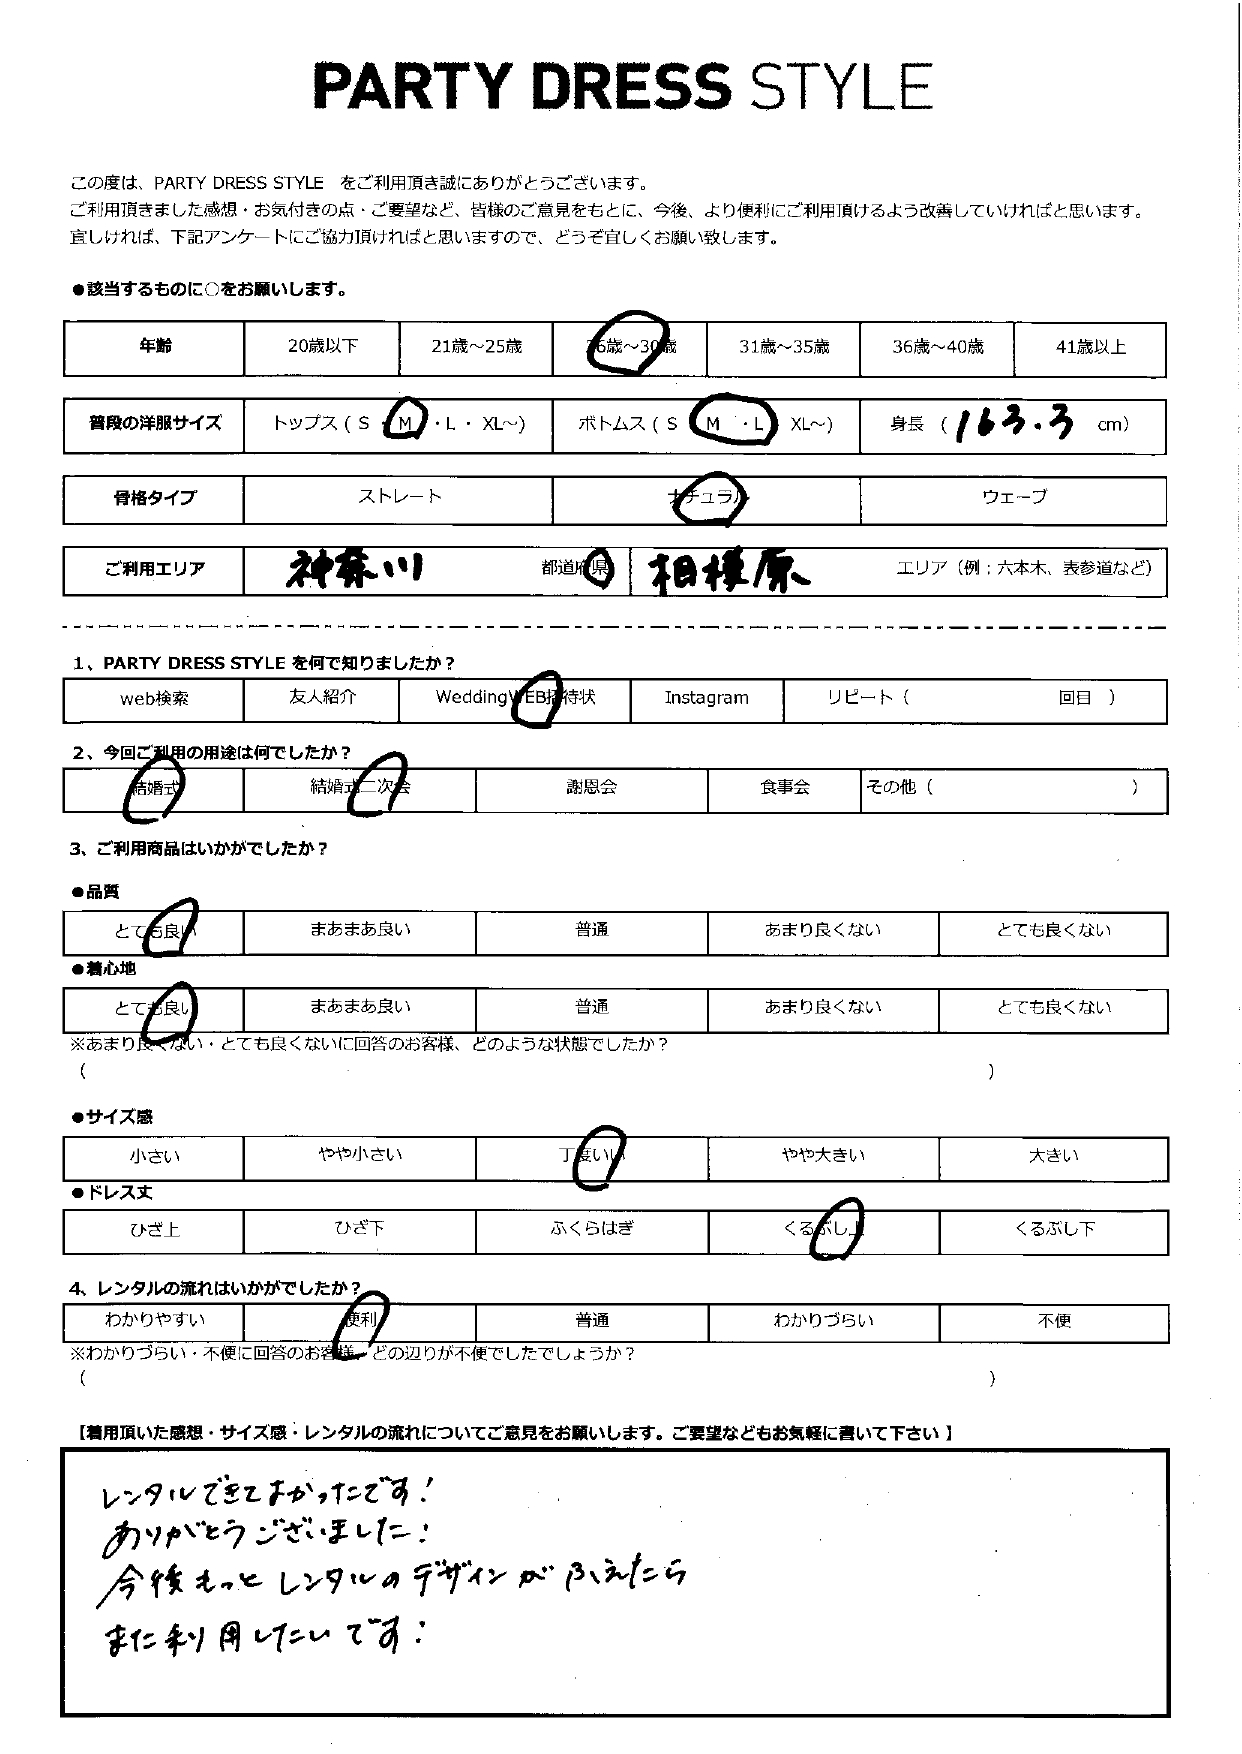 PARTY DRESS STYLE
この度は、PARTY DRESS STYLE をご利用頂き誠にありがとうございます。
ご利用頂きました感想・お気付きの点・ご要望など、皆様のご意見をもとに、今後、より便利にご利用頂けるよう改善していければと思います。
宜しければ、下記アンケートにご協力頂ければと思いますので、どうぞ宜しくお願い致します。
●該当するものに○をお願いします。
年齢 20歳以下 21歳～25歳 26歳～30歳 31歳～35歳 36歳～40歳 41歳以上
普段の洋服サイズ トップス ( S ・ M ・ L ・ XL～) ボトムス ( S M ・ L XL～) 身長 ( 163.3 cm)
骨格タイプ ストレート ナチュラル ウェーブ
ご利用エリア 神奈川 都道府県 相模原 エリア（例：六本木、表参道など）
1、PARTY DRESS STYLE を何で知りましたか？
web検索 友人紹介 WeddingWEB招待状 Instagram リピート（ 回目 ）
2、今回ご利用の用途は何でしたか？
結婚式 結婚式二次会 謝恩会 食事会 その他（ ）
3、ご利用商品はいかがでしたか？
●品質
とても良い まあまあ良い 普通 あまり良くない とても良くない
●着心地
とても良い まあまあ良い 普通 あまり良くない とても良くない
※あまり良くない・とても良くないに回答のお客様、どのような状態でしたか？
（ ）
●サイズ感
小さい やや小さい 丁度いい やや大きい 大きい
●ドレス丈
ひざ上 ひざ下 ふくらはぎ くるぶし上 くるぶし下
4、レンタルの流れはいかがでしたか？
わかりやすい 便利 普通 わかりづらい 不便
※わかりづらい・不便に回答のお客様、どの辺りが不便でしたでしょうか？
（ ）
【着用頂いた感想・サイズ感・レンタルの流れについてご意見をお願いします。ご要望などもお気軽に書いて下さい 】
レンタルできてよかったです！
ありがとうございました！
今後もっとレンタルのデザインがふえたら
また利用したいです！